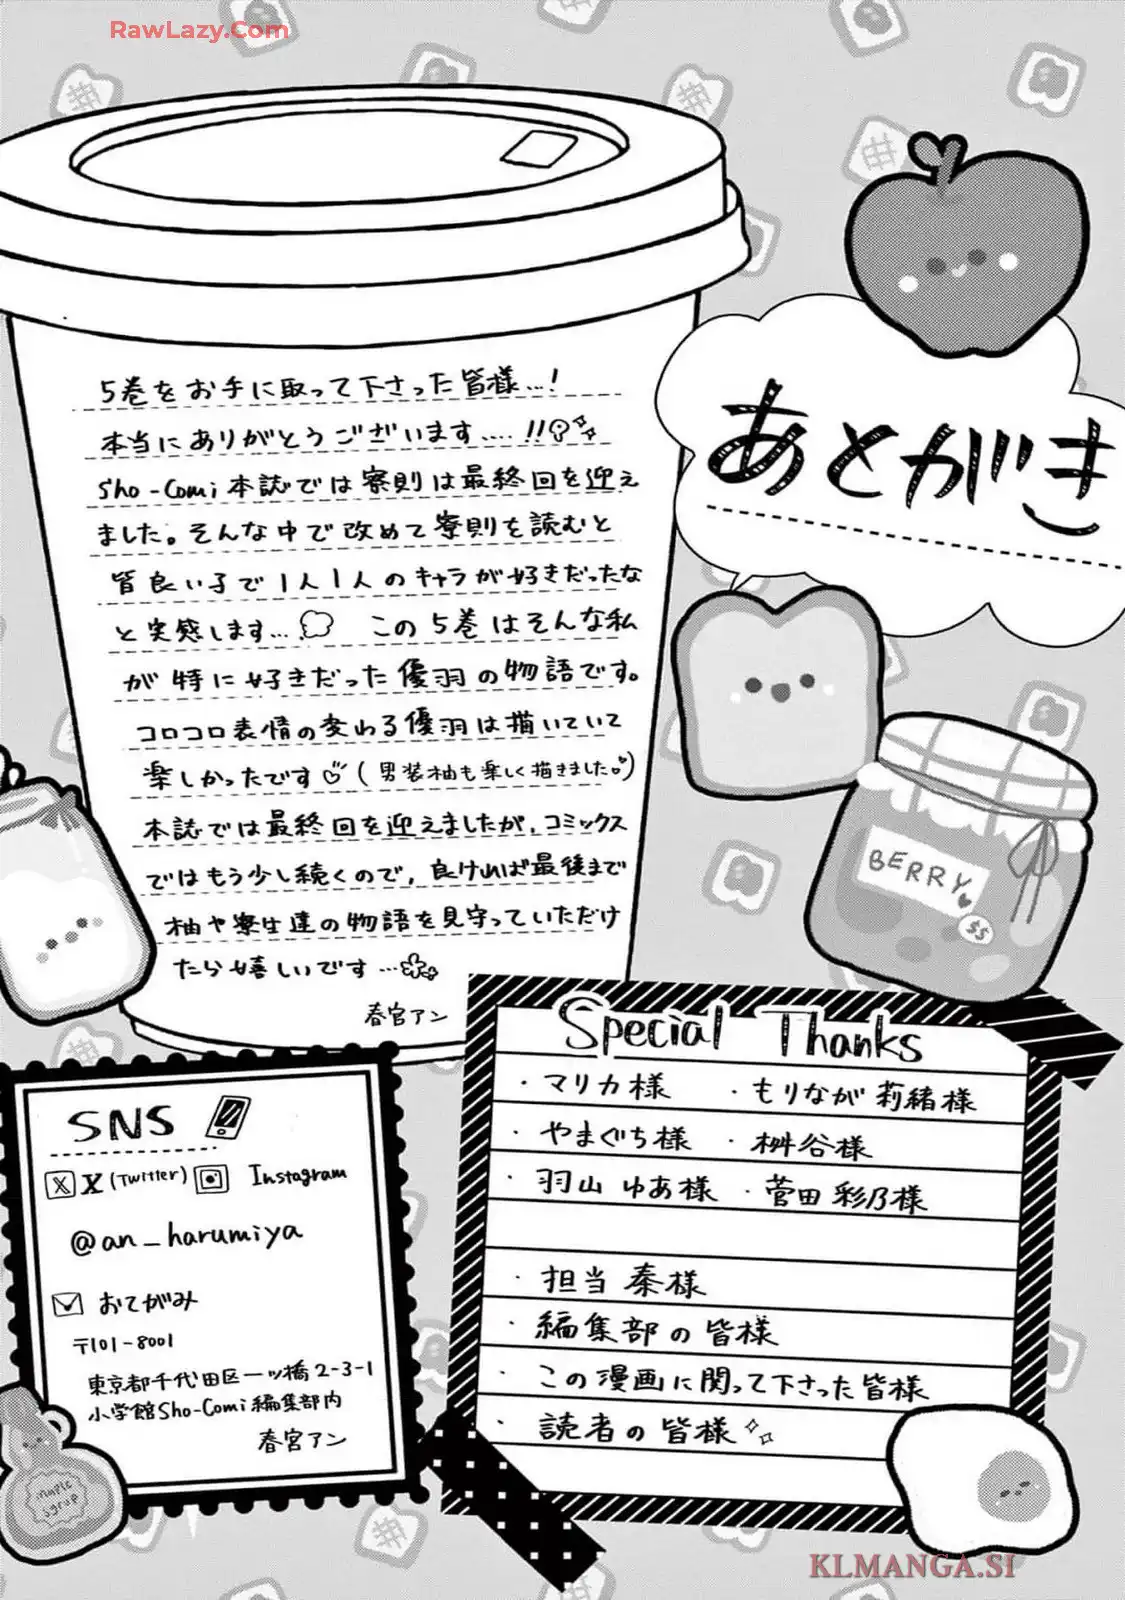 RawLazy.Com
あとがき
5巻をお手に取って下さった皆様…!
本当にありがとうございます….!!
Sho-Comi本誌では寮則は最終回を迎え
ました。そんな中で改めて寮則を読むと
皆良い子で1人1人のキャラが好きだったな
と実感します… この5巻はそんな私
が特に好きだった優羽の物語です。
コロコロ表情の変わる優羽は描いていて
楽しかったです♡(男装柚も楽しく描きました♡)
本誌では最終回を迎えましたが、コミックス
ではもう少し続くので、良ければ最後まで
柚や寮生達の物語を見守っていただけ
たら嬉しいです…
春宮アン
BERRY
$$
SNS
X X(Twitter) Instagram
@an_harumiya
おてがみ
〒101-8001
東京都千代田区一ッ橋2-3-1
小学館Sho-Comi編集部内
春宮アン
maple
syrup
Special Thanks
・マリカ様 ・もりなが莉緒様
・やまぐち様 ・桝谷様
・羽山ゆあ様 ・菅田彩乃様
・担当 秦様
・編集部の皆様
・この漫画に関って下さった皆様
・読者の皆様
KLMANGA.SI